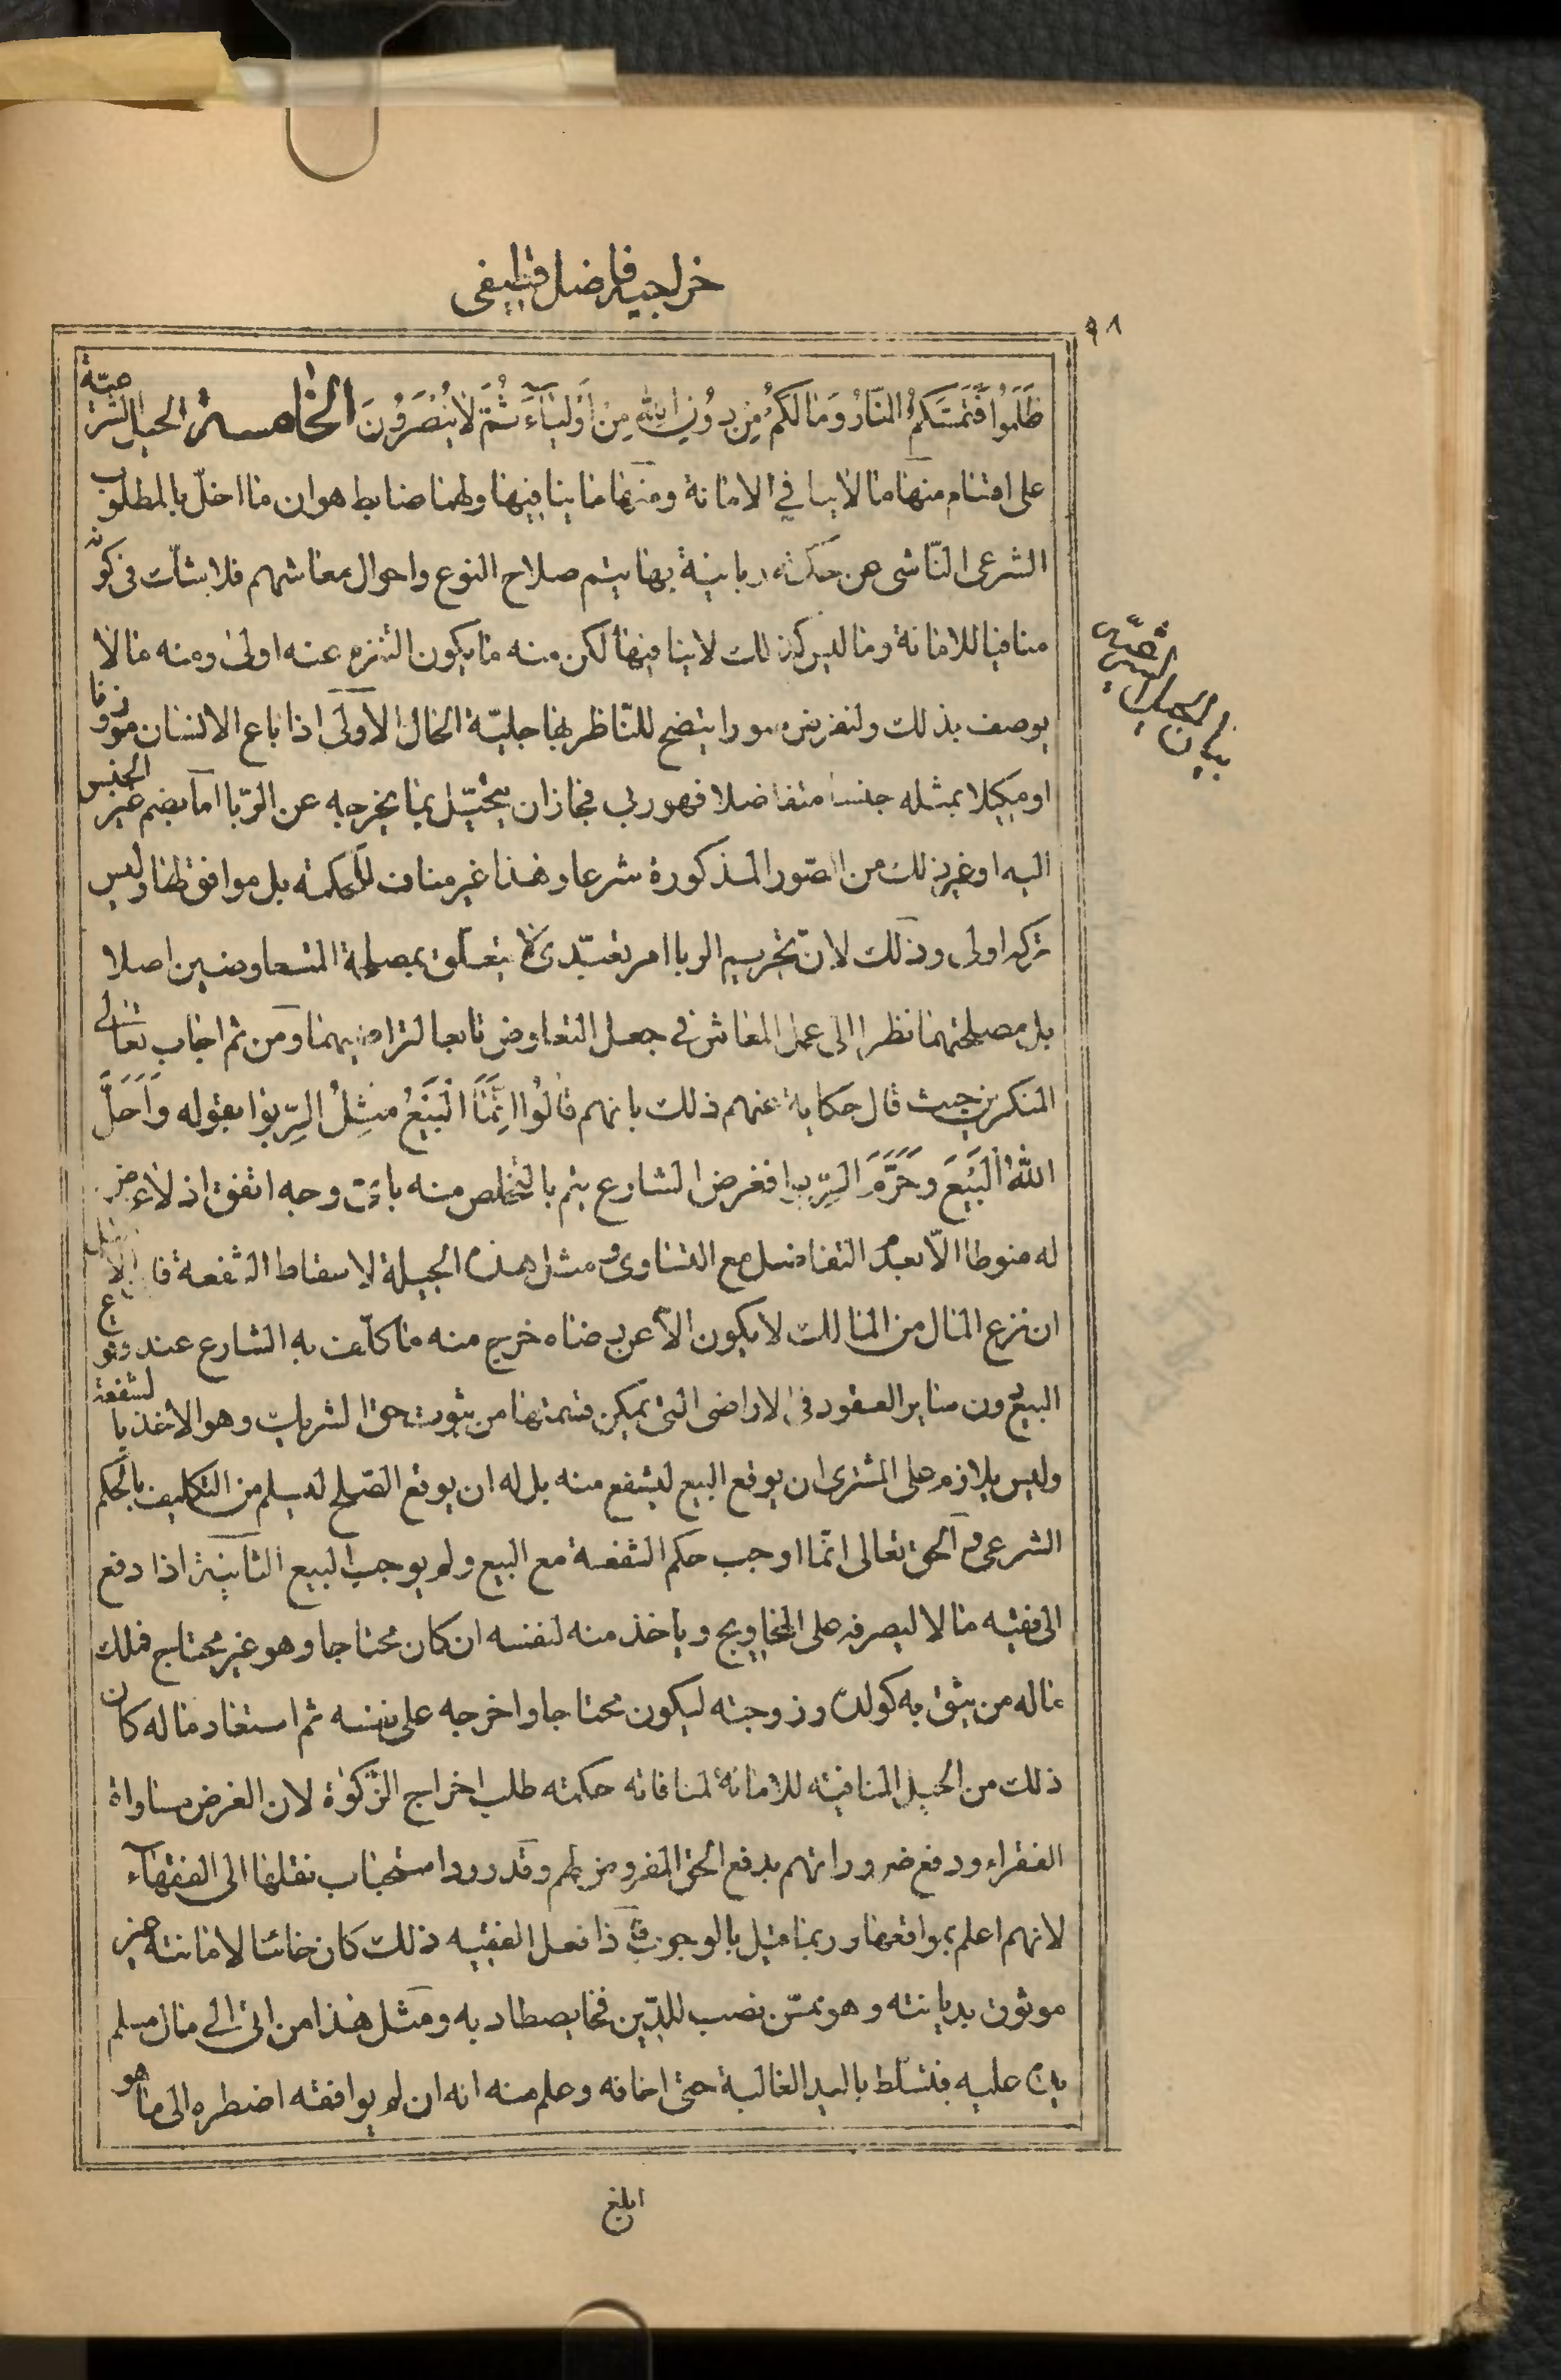 خراجية فاضل قطيفى
٩٨
ظَلَمُوا فَتَمَسَّكُمُ النَّارُ وَمَا لَكُمْ مِنْ دُونِ اللهِ مِنْ أَوْلِيَاءَ ثُمَّ لَا تُنْصَرُونَ الخامسة الحيل الشرعيّة
على اقسام منها ما لا ينافي الامانة ومنها ما ينافيها ولهما ضابط هو ان ما اخلّ بالمطلوب
الشرعى النّاشى عن حكمة ربانية بها يتم صلاح النوع واحوال معاشهم فلا يشكّ فى كونه
منافيا للامانة وما ليس كذلك لا ينافيها لكن منه ما يكون التنزه عنه اولى ومنه ما لا
يوصف بذلك ولنفرض صورا يتضح للنّاظر بها جليّة الحال الأولى اذا باع الانسان موزونا
او مكيلا بمثله جنسا متفاضلا فهو ربى فجاز ان يتحيّل بما يخرجه عن الرّبا اما بضم غير الجنس
اليه او غير ذلك من الصّور المذكورة شرعا وهذا غير مناف للحكمة بل موافق لها وليس
تركه اولى وذلك لانّ تحريم الربا امر تعبّدى لا يتعلّق بمصلحة المتعاوضين اصلا
بل مصلحتهما نظرا الى عمل المعاش فى جعل التعاوض تابعا لتراضيهما ومن ثم اجاب تعالى
المنكرين حيث قال حكاية عنهم ذلك بانهم قَالُوا إِنَّمَا الْبَيْعُ مِثْلُ الرِّبوا بقوله وَأَحَلَّ
اللهُ الْبَيْعَ وَحَرَّمَ الرِّبوا فغرض الشارع يتم بالتخلص منه باىّ وجه اتفق اذ لا غرض
له منوطا الّا بعدم التفاضل مع التساوى ومثل هذه الحيلة لاسقاط الشفعة فا الاصل
ان نزع المال من المالك لا يكون الّا عن رضاه خرج منه ما كلّف به الشارع عند وقوع
البيع دون سائر العقود فى الاراضى التى يمكن قسمتها من ثبوت حق الشريك وهو الاخذ بالشفعة
وليس بلازم على المشترى ان يوقع البيع ليشفع منه بل له ان يوقع الصّلح ليسلم من التكليف بالحكم
الشرعى و الحق تعالى انّما اوجب حكم الشفعة مع البيع ولم يوجب البيع الثانية اذا دفع
الى فقيه مالا ليصرفه على المحاويج وياخذ منه لنفسه ان كان محتاجا وهو غير محتاج فملك
ماله من يثق به كولده وزوجته ليكون محتاجا واخرجه على نفسه ثم استعاد ماله كان
ذلك من الحيل المنافية للامانة لمنافاته حكمة طلب اخراج الزّكوة لان الغرض مساواة
الفقراء ودفع ضروراتهم بدفع الحق المفروض لهم وقد ورد استحباب نقلها الى الفقهاء
لانهم اعلم بمواقعها وربما قيل بالوجوب فاذا فعل الفقيه ذلك كان خائنا لامانته غير
موثوق بديانته وهو ممّن نصب للدّين فخا يصطاد به ومثل هذا من اتى الى مال مسلم
عليه فتسلّط باليد الغالبة حتى اخافه وعلم منه انه ان لم يوافقه اضطره الى ما هو
ابلغ
بيان الحيل الشرعيّة